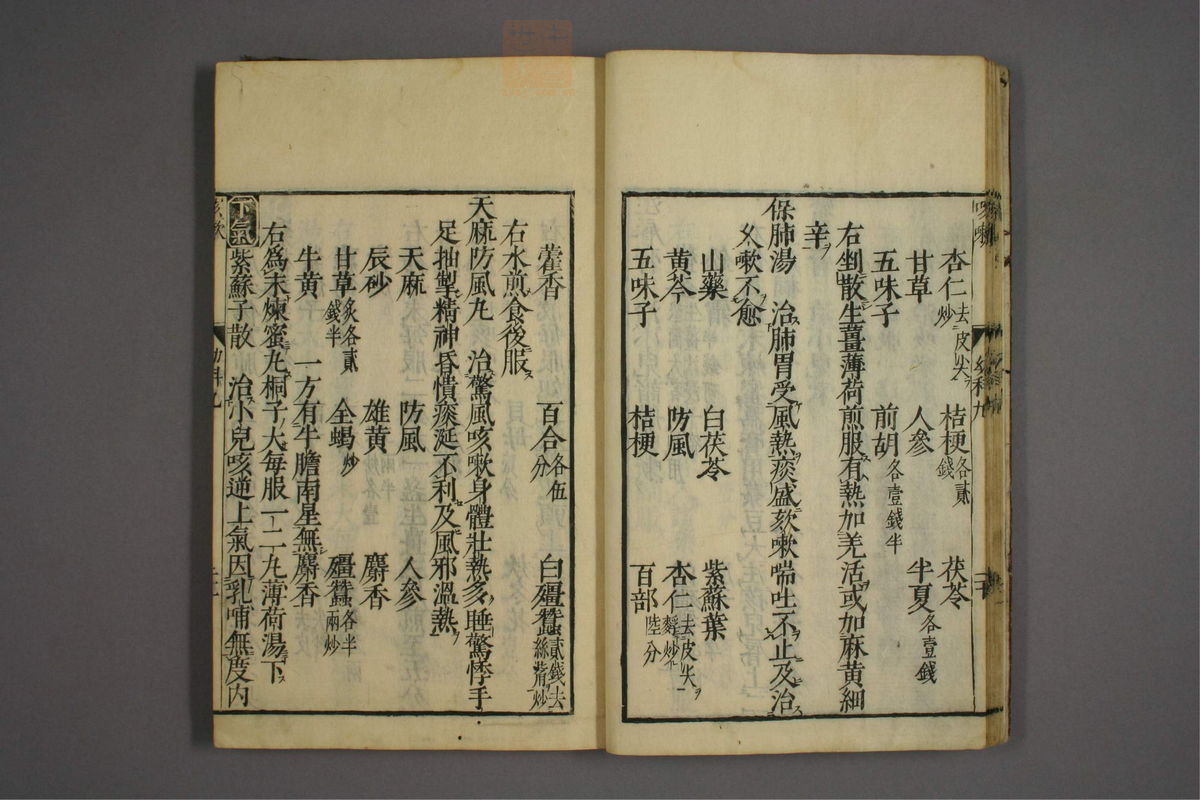 咳嗽 幼科九
杏仁去皮尖炒 桔梗各貳錢 茯苓
甘草 人參 半夏各壹錢
五味子 前胡各壹錢半
右剉散生薑薄荷煎服有熱加羌活或加麻黃細
辛
保肺湯 治肺胃受風熱痰盛欬嗽喘吐不止及治
久嗽不愈
山藥 白茯苓 紫蘇葉
黃芩 防風 杏仁去皮尖麩炒
五味子 桔梗 百部陸分
藿香 百合各伍分 白殭蠶貳錢去絲觜炒
右水煎食後服
天麻防風丸 治驚風咳嗽身體壯熱多睡驚悸手
足抽掣精神昏憒痰涎不利及風邪溫熱
天麻 防風 人參
辰砂 雄黃 麝香
甘草炙各貳錢半 全蝎炒 殭蠶各半兩炒
牛黃 一方有牛膽南星無麝香
右爲末煉蜜丸桐子大每服一二丸薄荷湯下
下氣 紫蘇子散 治小兒咳逆上氣因乳哺無度内